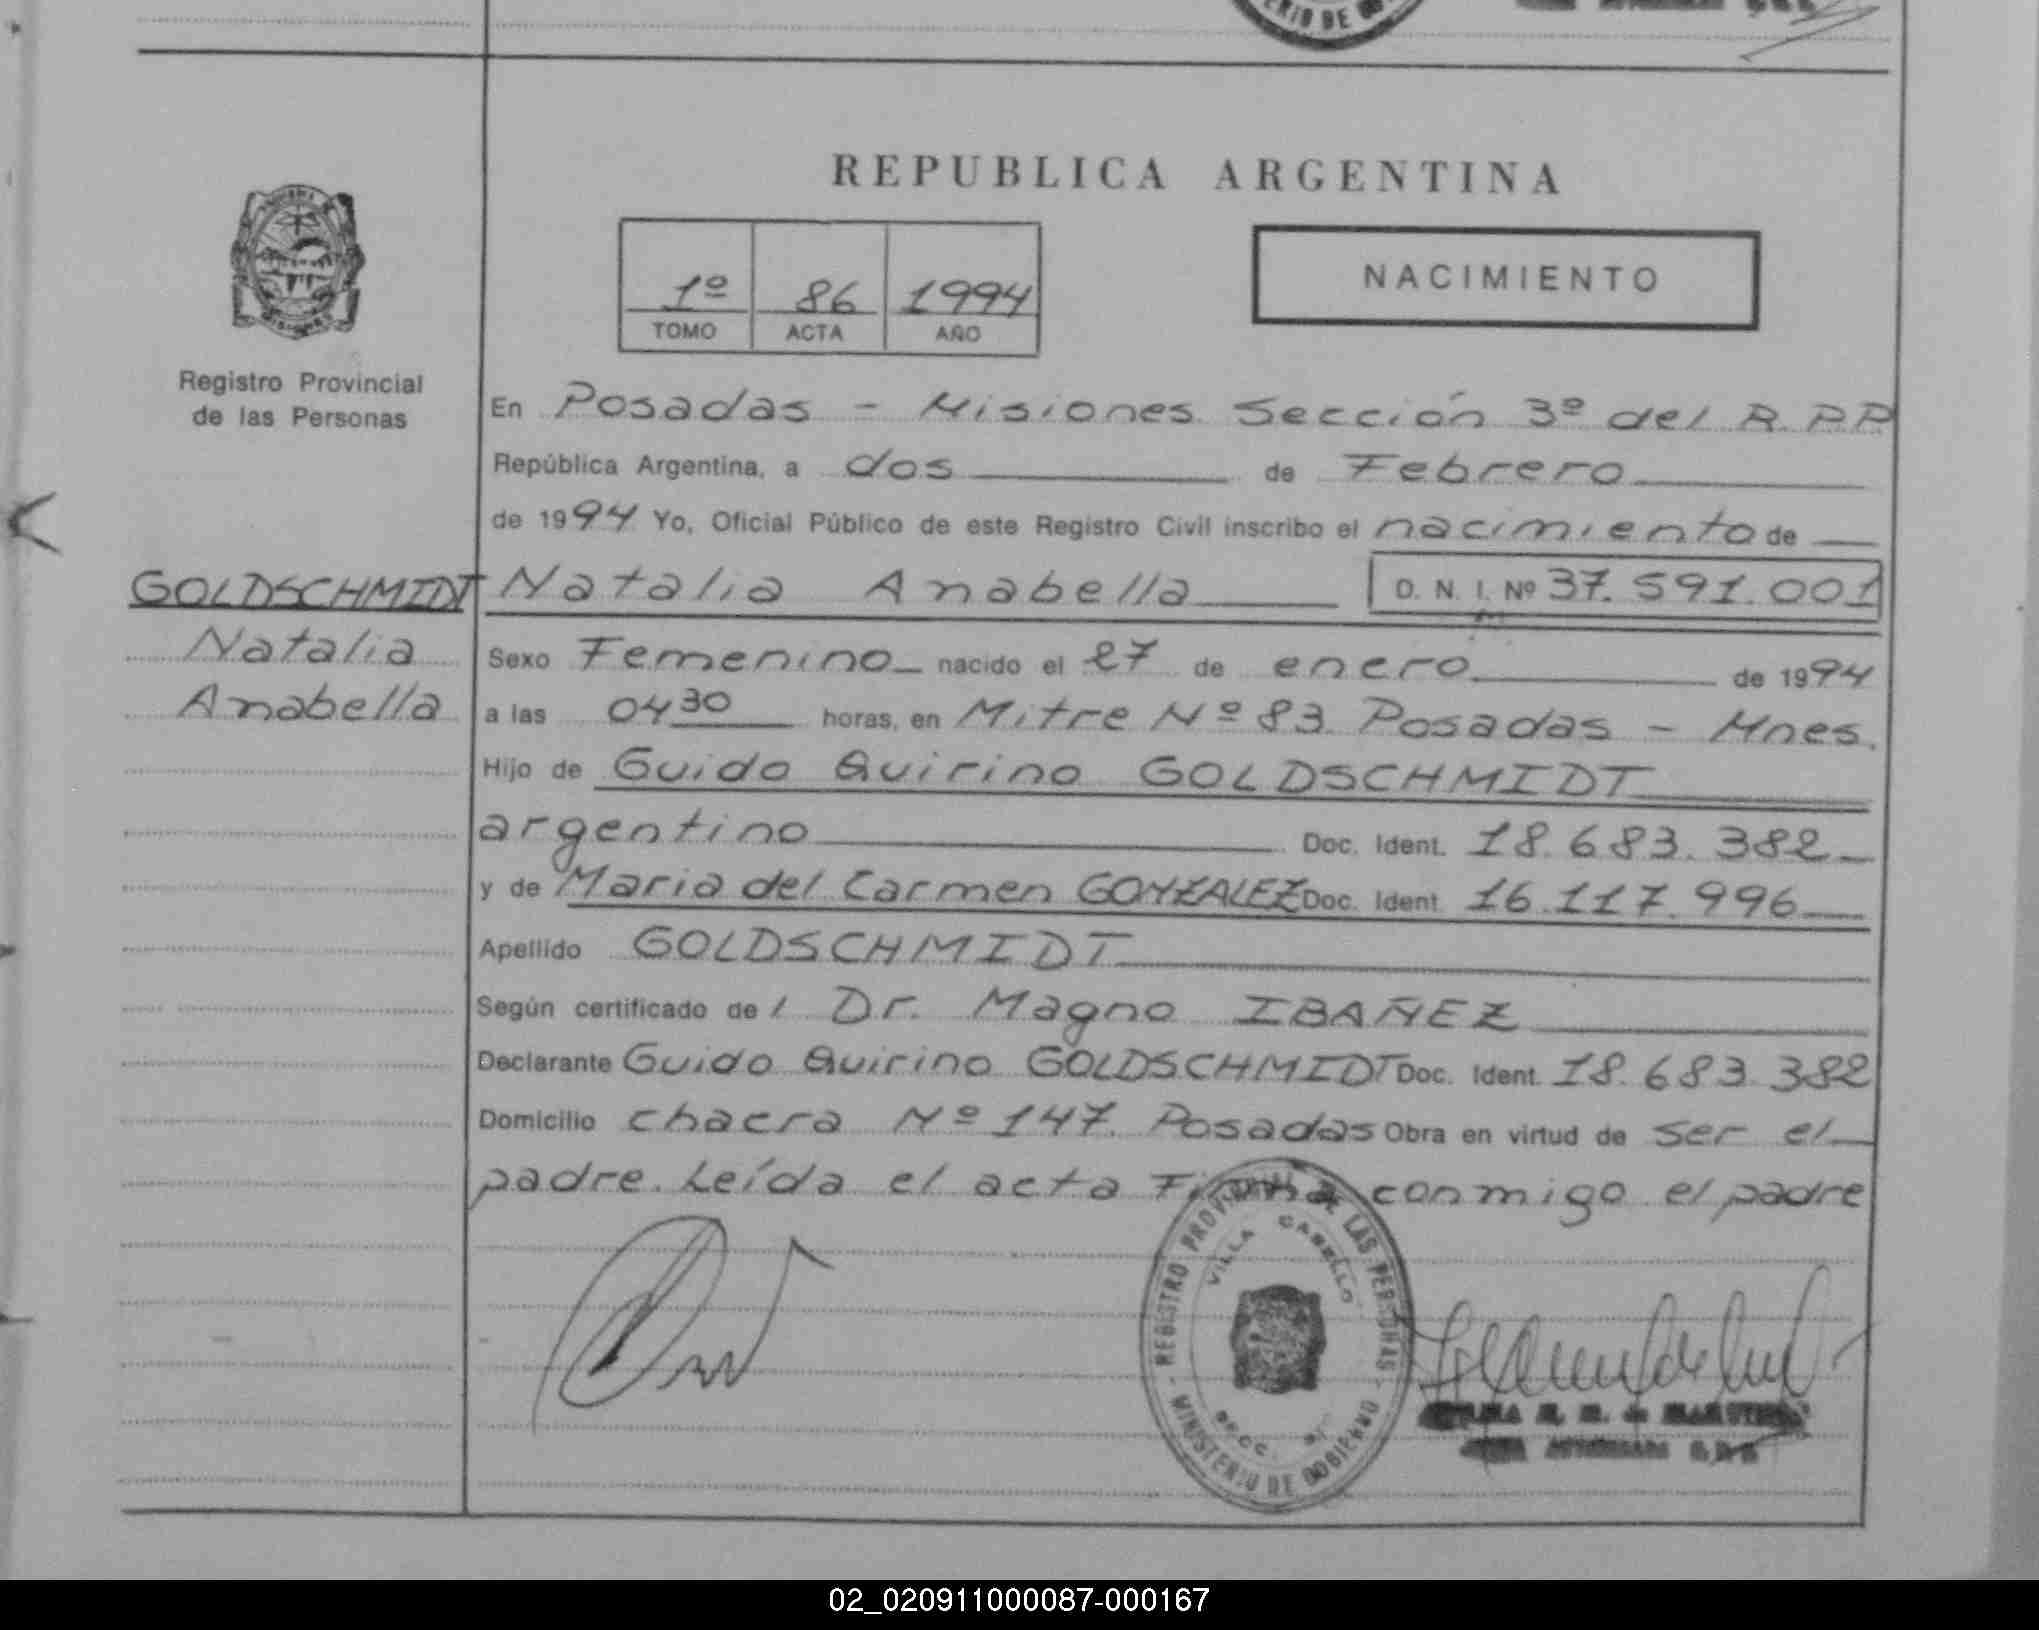 REPUBLICA ARGENTINA
1º 86 1994
TOMO ACTA AÑO
NACIMIENTO
Registro Provincial
de las Personas
En Posadas - Misiones Sección 3º del R.P.P
República Argentina, a dos de Febrero
de 1994 Yo, Oficial Público de este Registro Civil inscribo el nacimiento de
GOLDSCHMIDT
Natalia
Anabella
Natalia Anabella D. N. I. Nº 37.591.001
Sexo Femenino nacido el 27 de enero de 1994
a las 04 30 horas, en Mitre Nº 83. Posadas - Mnes.
Hijo de Guido Quirino GOLDSCHMIDT
argentino Doc. Ident. 18.683.382
y de Maria del Carmen GONZALEZ Doc. Ident. 16.117.996
Apellido GOLDSCHMIDT
Según certificado del Dr. Magno IBAÑEZ
Declarante Guido Quirino GOLDSCHMIDT Doc. Ident. 18.683.382
Domicilio chacra Nº 147. Posadas Obra en virtud de ser el
padre. Leída el acta Firma conmigo el padre
REGISTRO PROVINCIAL DE LAS PERSONAS
VILLA CABELLO
- MINISTERIO DE GOBIERNO -
02_020911000087-000167